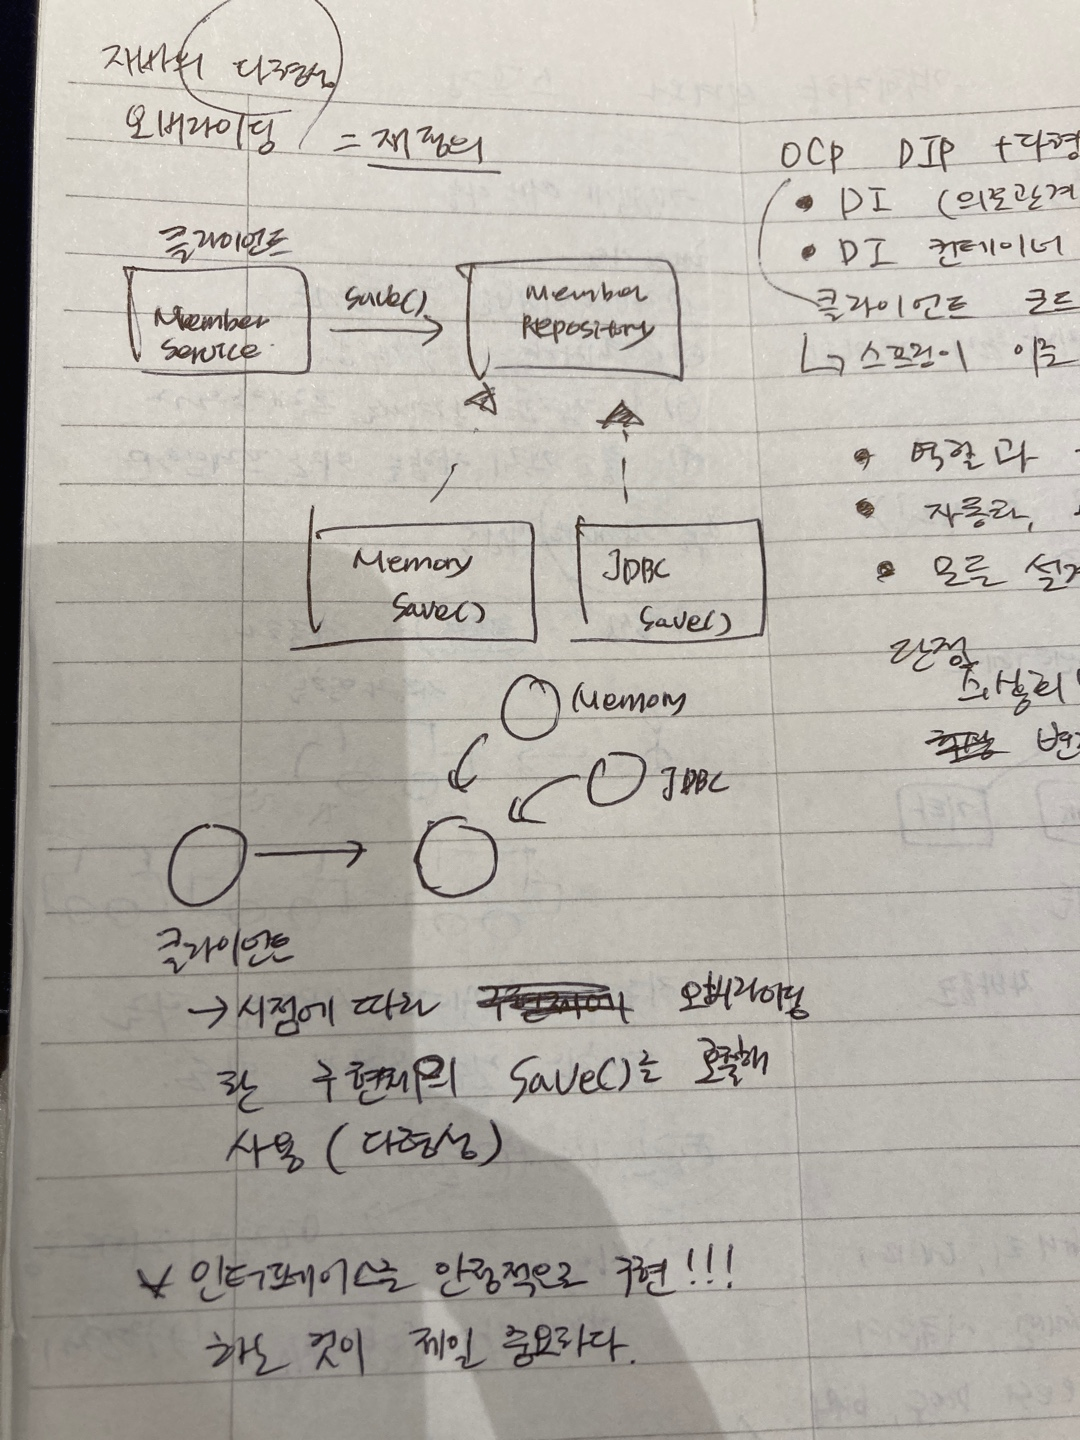 자바의 다형성
오버라이딩 = 재정의
클라이언트
Member
Service
save()
Member
Repository
Memory
Save()
JDBC
Save()
Memory
JDBC
클라이언트
→ 시점에 따라 오버라이딩
한 구현체의 Save()를 호출해
사용 (다형성)
인터페이스를 안정적으로 구현!!!
하는 것이 제일 중요하다.
OCP DIP + 다형
• DI (의존관계
• DI 컨테이너
클라이언트 코드
↳ 스프링이 이를
• 역할과
• 자동차,
• 모든 설계
단점
변